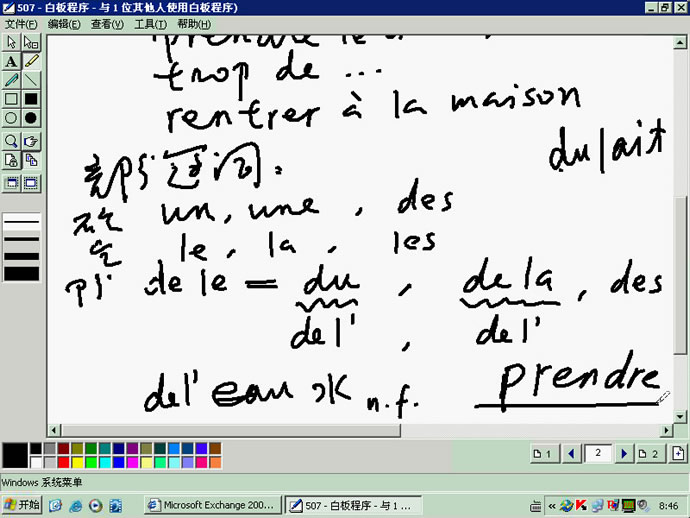 507 - 白板程序 - 与 1 位其他人使用白板程序)
文件(F) 编辑(E) 查看(V) 工具(T) 帮助(H)
trop de ...
rentrer à la maison
du lait
部分冠词:
un, une, des
定 le, la, les
部 de le = du, de la, des
de l', de l'
de l' eau 水 n.f. prendre
1 2 2
Windows 系统菜单
开始 Microsoft Exchange 200... 507 - 白板程序 - 与 1 ... 8:46